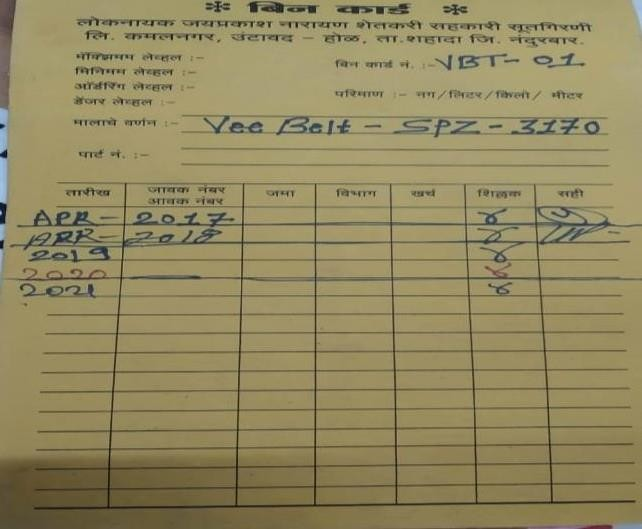 ❇ बिन कार्ड ❇
लोकनायक जयप्रकाश नारायण शेतकरी सहकारी सूतगिरणी
लि. कमलनगर, उंटावद – होळ, ता.शहादा जि. नंदुरबार.
मॅक्झिमम लेव्हल :–
मिनिमम लेव्हल :– बिन कार्ड नं. :– VBT- 01
ऑर्डरिंग लेव्हल :–
डेंजर लेव्हल :– परिमाण :– नग/लिटर/किलो/ मीटर
मालाचे वर्णन :– Vee Belt - SPZ - 3170
पार्ट नं. :–
तारीख जावक नंबर जमा विभाग खर्च शिल्लक सही
आवक नंबर
APR - 2017 ४
APR - 2018 ४
2019 ४
2020 — ४
2021 ४